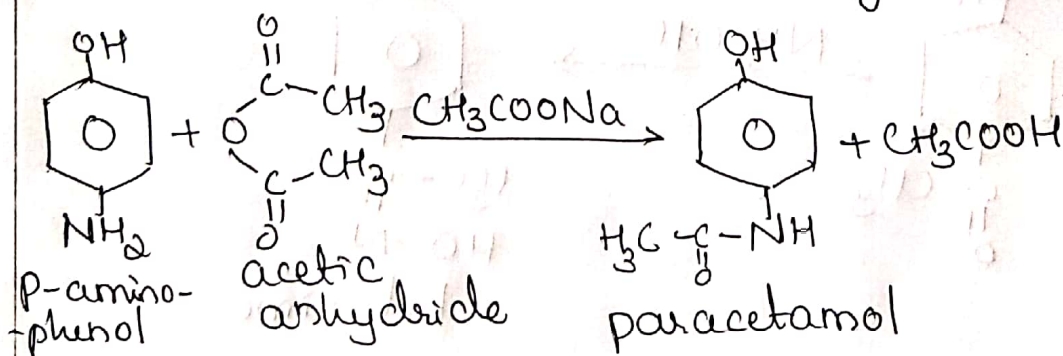 OH
NH₂
p-amino-
-phenol
+
O
||
C-CH₃
O
C-CH₃
||
O
acetic
anhydride
CH₃COONa
OH
H₃C-C-NH
||
O
paracetamol
+ CH₃COOH